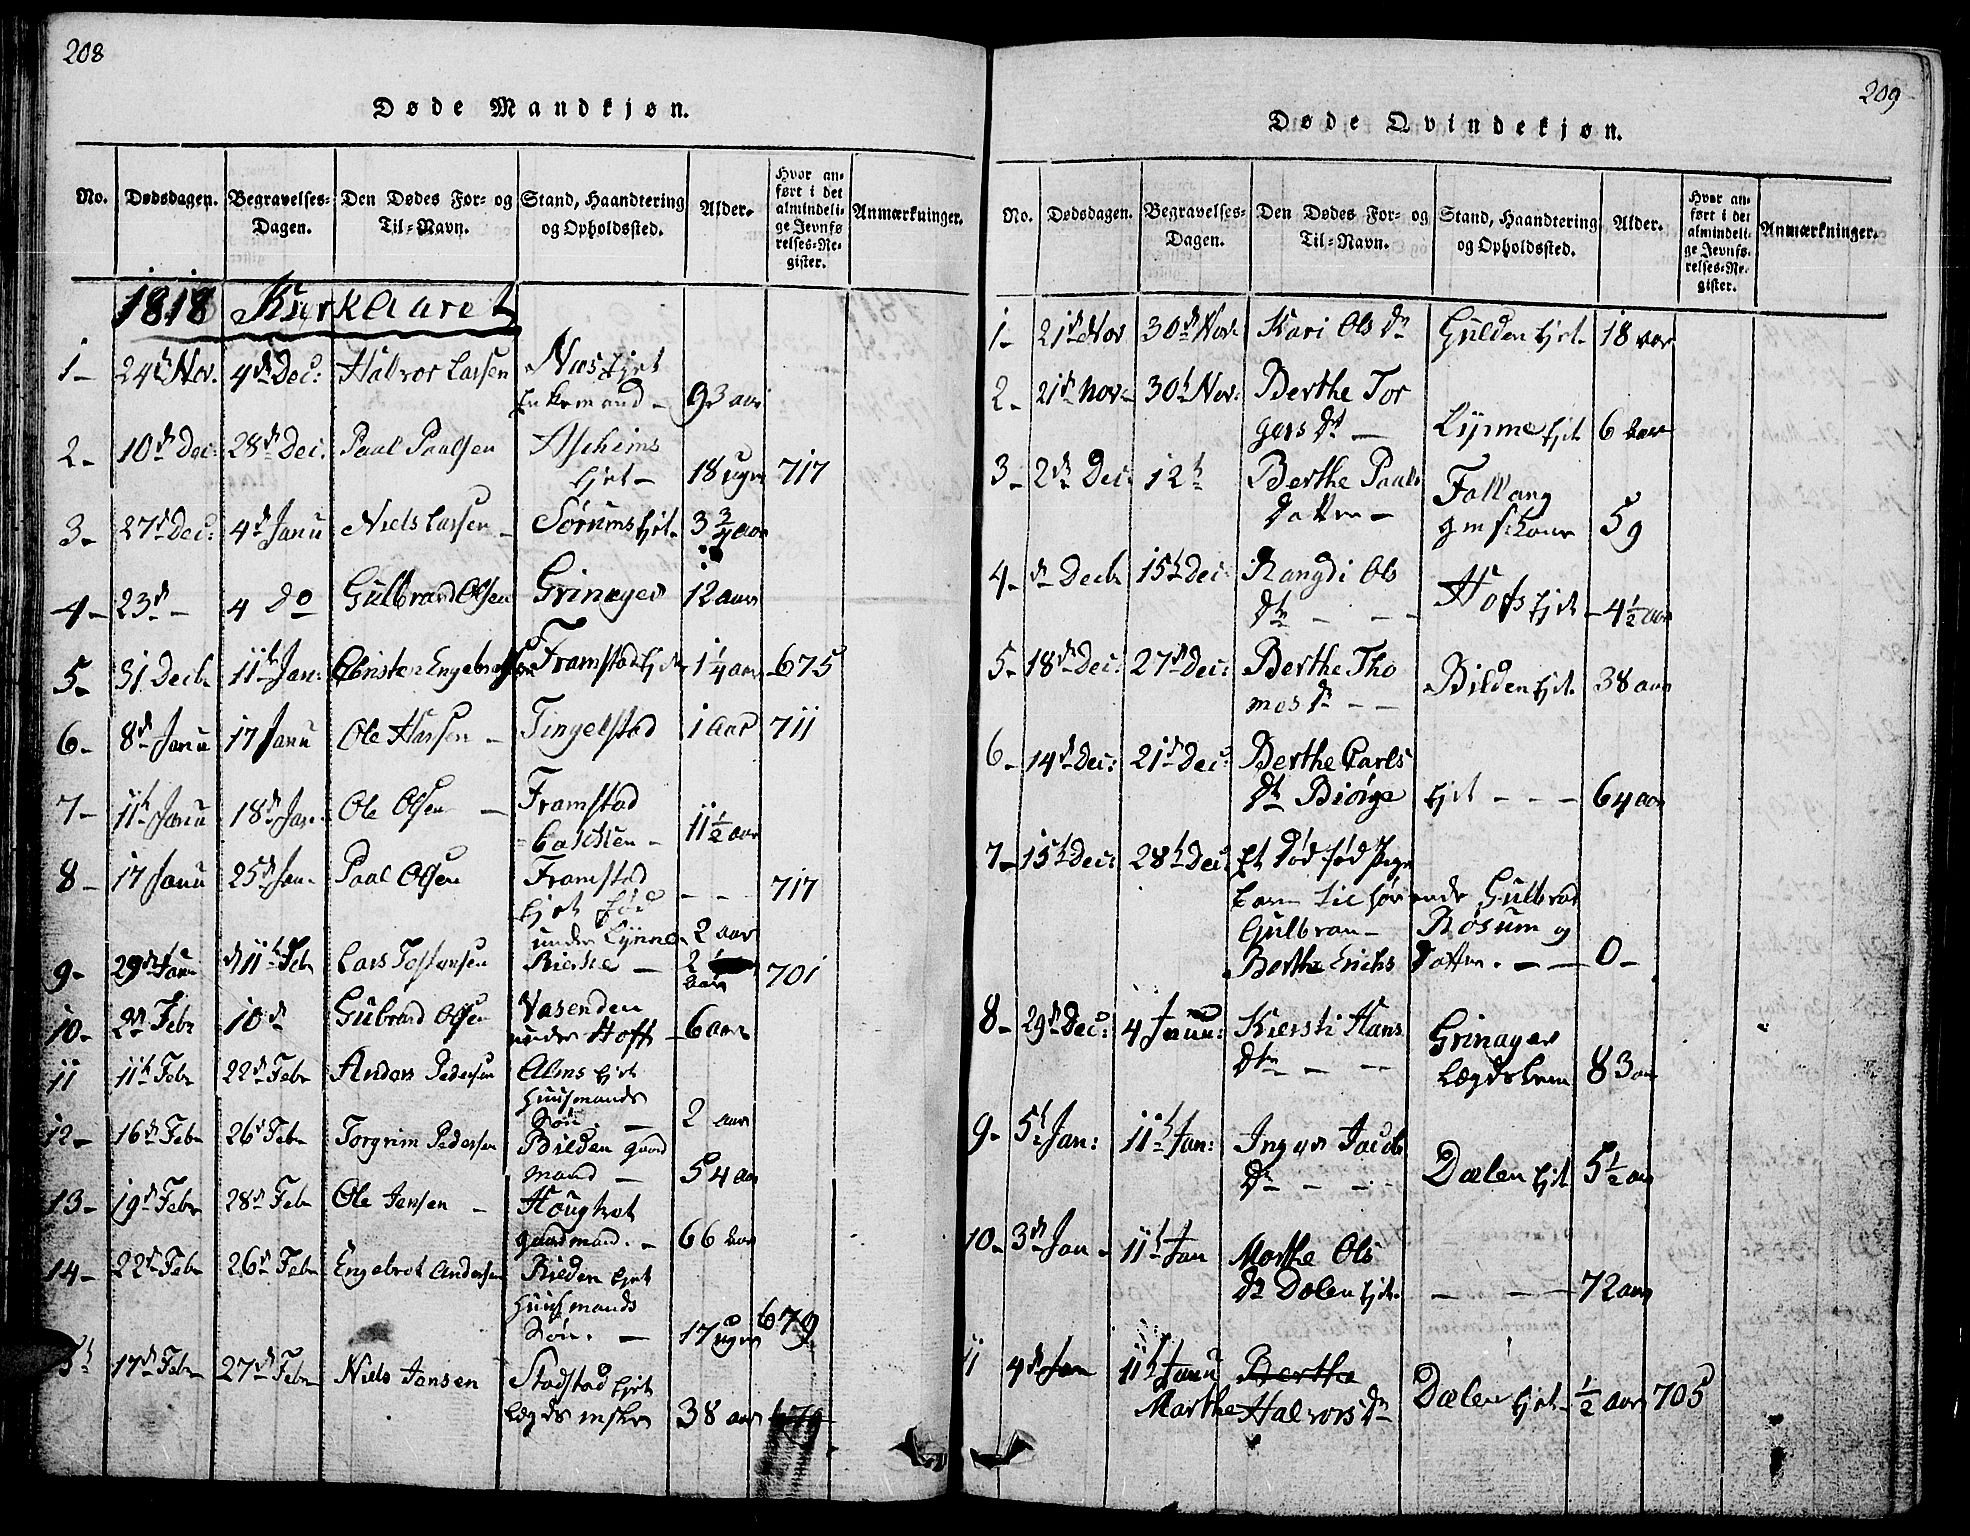 208
Døde Mandkjøn.
No. Dødsdagen. Begravelses-Dagen. Den Dødes For- og Til-Navn. Stand, Haandtering og Opholdssted. Alder. Hvor anført i det almindelige Jevnførelses-Register. Anmærkninger.
1818 Kirkeaaret
1- 24d Nov. 4d Dec: Halvor Larsen Næs Ejet
Enkemand - 93 aar
2- 10d Dec: 28d Dec. Paal Paalsen Ascheims
Ejet - 18 uger 717
3- 27d Dec: 4d Janu Niels Larsen - Sørums Ejet. 3 3/4 aar
4- 23d - 4 do Gulbrand Olsen Grinager 12 aar
5- 31 Decb. 11h Jan: Christen Engebretsen Framstad Ejet 1 1/4 aar 675
6- 8d Janu 17 Janu Ole Hansen - Tingelstad 1 aar 711
7- 11h Janu 18d Jan. Ole Olsen - Framstad
11 1/2 aar
8- 17 Janu 25d Jan. Paal Olsen Framstad
Ejet født - - 717
under Lynne 2 aar
9- 29d Janu d 11h Feb Lars Tostensen - 2
aar 701
10- 2d Febr 10d Gulbrand Olsen Vasenden
under Hoff - 6 aar
11 11h Febr 22d Febr Anders Pedersen Alms Ejet
Huusmands
Søn. - 2 aar
12- 16d Feb 26d Febr Torgrim Pedersen Bilden gaard
mand - 54 aar
13- 19d Febr 28d Feb Ole Jensen -
gaardmand. - 66 aar
14- 22d Feb 26d Feb Engebret Andersen Bilden Ejet
Huusmands
Søn. - 17 uger 679
15h 17d Febr 27d Febr Niels Jansen Stadstad Ejet
Lægdsmskr 38 aar 679
209
Døde Qvindekjøn.
No. Dødsdagen. Begravelses-Dagen. Den Dødes For- og Til-Navn. Stand, Haandtering og Opholdssted. Alder. Hvor anført i det almindelige Jevnførelses-Register. Anmærkninger.
1- 21d Nov 30d Nov. Kari Ols Dr Gulden Ejet. 18 aar
2- 21d Nov- 30h Nov: Berthe Tor
gers Dr - Lynne Ejet 6 aar
3- 2d Dec. 12h Berthe Paals
Datter - Fallang
59
4- d Decb. 15h Dec: Rangdi Ols
Dr - - - Hofs Ejet - 4 1/2 aar
5- 18d Dec: 27d Dec: Berthe Tho
mas Dr - - Bilden Ejet. 38 aar
6- 14d Dec: 21d Dec: Berthe Carls
Dr Biørge Ejet - - - 64 aar
7- 15h Dec: 28h Dec. Et død fød Pige
barn tilhørende Gulbrad
Gulbran- Røsum og
Berthe Erichs Datter. - - 0-
8- 29d Dec: 4 Janu: Kiersti Hans
Dtr - - - Grinager
Lægdslem 83 aar
9- 5h Jan: 11h Jan: Inger Jacobs
Dr - - - - Dælen Ejet 5 1/2 aar
10- 3d Jan - 11h Jan Marthe Ols
Dr Dælen Ejet. - - - 72 aar
11 4d Jan 11h Janu Berthe
Marthe Halvors Dr Dælen Ejet - 1/2 aar 705